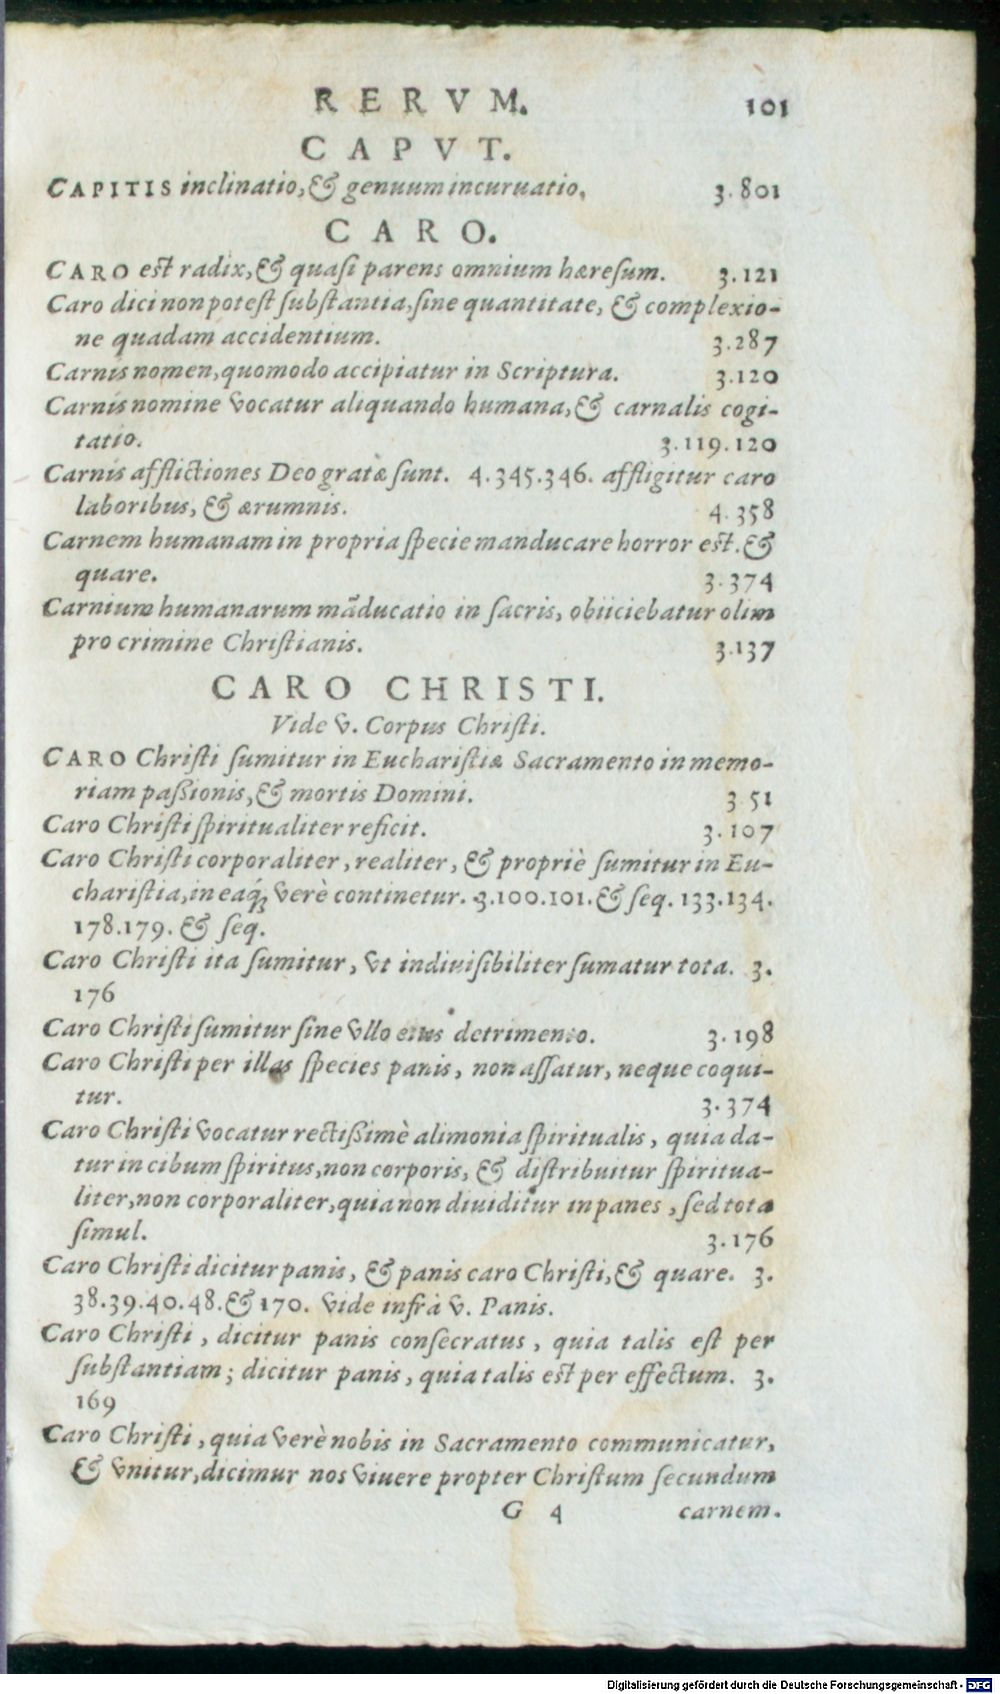 RERVM. 101
CAPVT.
CAPITIS inclinatio, & genuum incuruatio, 3.801
CARO.
CARO est radix, & quasi parens omnium hæresum. 3.121
Caro dici non potest substantia, sine quantitate, & complexio-
ne quadam accidentium. 3.287
Carnis nomen, quomodo accipiatur in Scriptura. 3.120
Carnis nomine vocatur aliquando humana, & carnalis cogi-
tatio. 3.119.120
Carnis afflictiones Deo gratæ sunt. 4.345.346. affligitur caro
laboribus, & ærumnis. 4.358
Carnem humanam in propria specie manducare horror est. &
quare. 3.374
Carnium humanarum mãducatio in sacris, obiiciebatur olim
pro crimine Christianis. 3.137
CARO CHRISTI.
Vide v. Corpus Christi.
CARO Christi sumitur in Eucharistiæ Sacramento in memo-
riam passionis, & mortis Domini. 3.51
Caro Christi spiritualiter reficit. 3.107
Caro Christi corporaliter, realiter, & propriè sumitur in Eu-
charistia, in eaq́; verè continetur. 3.100.101. & seq. 133.134.
178.179. & seq.
Caro Christi ita sumitur, vt indiuisibiliter sumatur tota. 3.
176
Caro Christi sumitur sine vllo eius detrimento. 3.198
Caro Christi per illas species panis, non assatur, neque coqui-
tur. 3.374
Caro Christi vocatur rectissimè alimonia spiritualis, quia da-
tur in cibum spiritus, non corporis, & distribuitur spiritua-
liter, non corporaliter, quia non diuiditur in panes, sed tota
simul. 3.176
Caro Christi dicitur panis, & panis caro Christi, & quare. 3.
38.39.40.48. & 170. Vide infrà v. Panis.
Caro Christi, dicitur panis consecratus, quia talis est per
substantiam; dicitur panis, quia talis est per effectum. 3.
169
Caro Christi, quia verè nobis in Sacramento communicatur,
& vnitur, dicimur nos viuere propter Christum secundum
G 4 carnem.
Digitalisierung gefördert durch die Deutsche Forschungsgemeinschaft - DFG